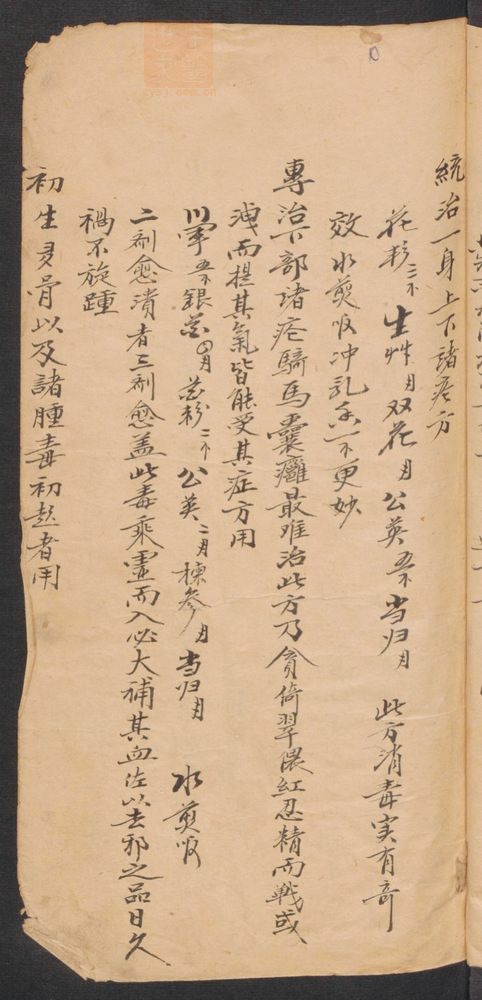 統治一身上下諸瘡方
花粉三个 生艸 双花 公英五个 当归 此方消毒实有奇
效水煎服冲乳香一个更妙
專治下部諸疮騎馬囊癰最难治此方乃貪倚翠偎紅忍精而戰或
洩而提其氣皆能受其症方用
川軍五个 銀花 花粉二个 公英 揀參 当归 水煎服
二剂愈潰者三剂愈盖此毒乘虛而入必大補其血佐以去邪之品日久
禍不旋踵
初生多骨以及諸腫毒初起者用